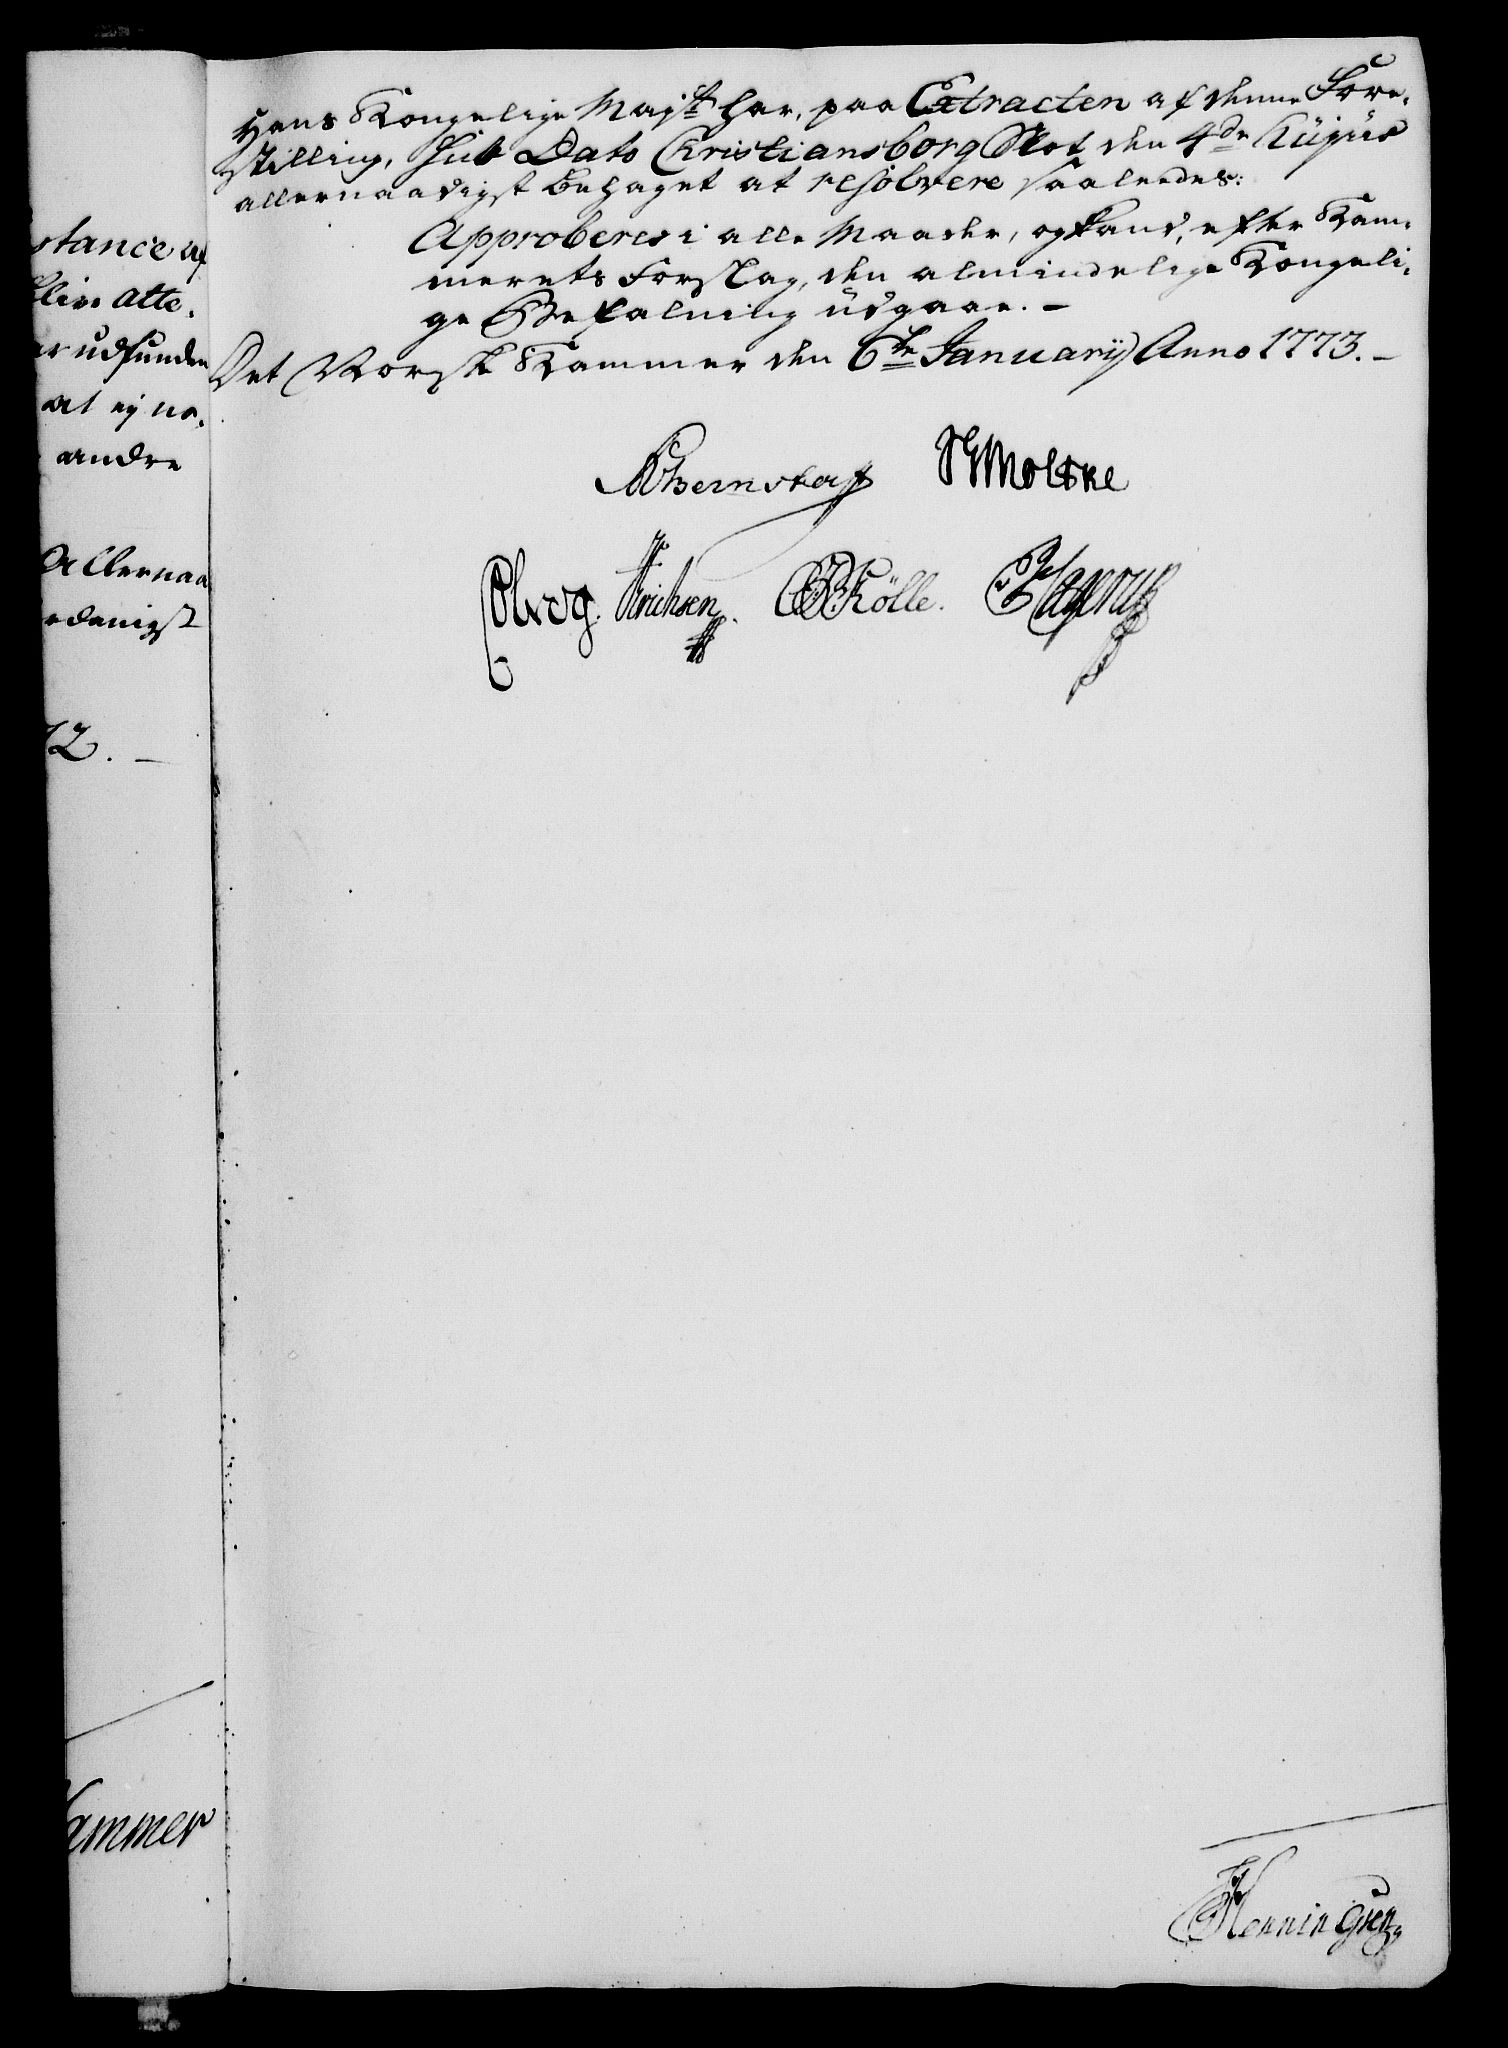 stance af
blive atte-
er udfunden
at ej no-
andre
allernaa
edanigst
72. –
Kammer
Hans Kongelige Majst har, paa Extracten af denne Fore-
stilling, sub Dato Christiansborg Slot den 4de hujus
allernaadigst behaget at resolvere saaledes:
Approberes i alle Maader, og kand, efter Kam-
merets Forslag, den almindelige Kongeli-
ge Befalning udgaae. –
Det Norske Kammer den 6te Januarij Anno 1773. –
APBernstorff JGMoltke
Colvog. Erichsen. Kölle. Hagerup
Henningsen